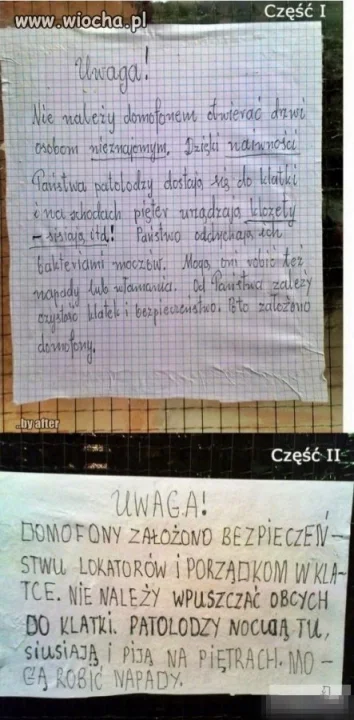 www.wiocha.pl
Część I
Uwaga!
Nie należy domofonem otwierać drzwi
osobom nieznajomym. Dzięki naiwności
Państwa patolodzy dostają się do klatki
i na schodach pięter urządzają klozety
– sisiają itd! Państwo oddychają ich
bakteriami moczów. Mogą oni robić też
napady lub włamania. Od Państwa zależy
czystość klatek i bezpieczeństwo. Po to założono
domofony.
..by after
Część II
UWAGA!
DOMOFONY ZAŁOŻONO BEZPIECZEŃ–
STWU LOKATORÓW i PORZĄDKOM W KLA–
TCE. NIE NALEŻY WPUSZCZAĆ OBCYCH
DO KLATKI. PATOLODZY NOCUJĄ TU,
SIUSIAJĄ i PIJĄ NA PIĘTRACH. MO–
GĄ ROBIĆ NAPADY.